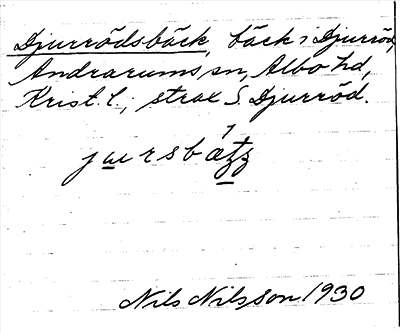 Djurrödsbäck, bäck i Djurröd,
Andrarums sn, Albo hd,
Krist. l.; strax S. Djurröd.
Nils Nilsson 1930